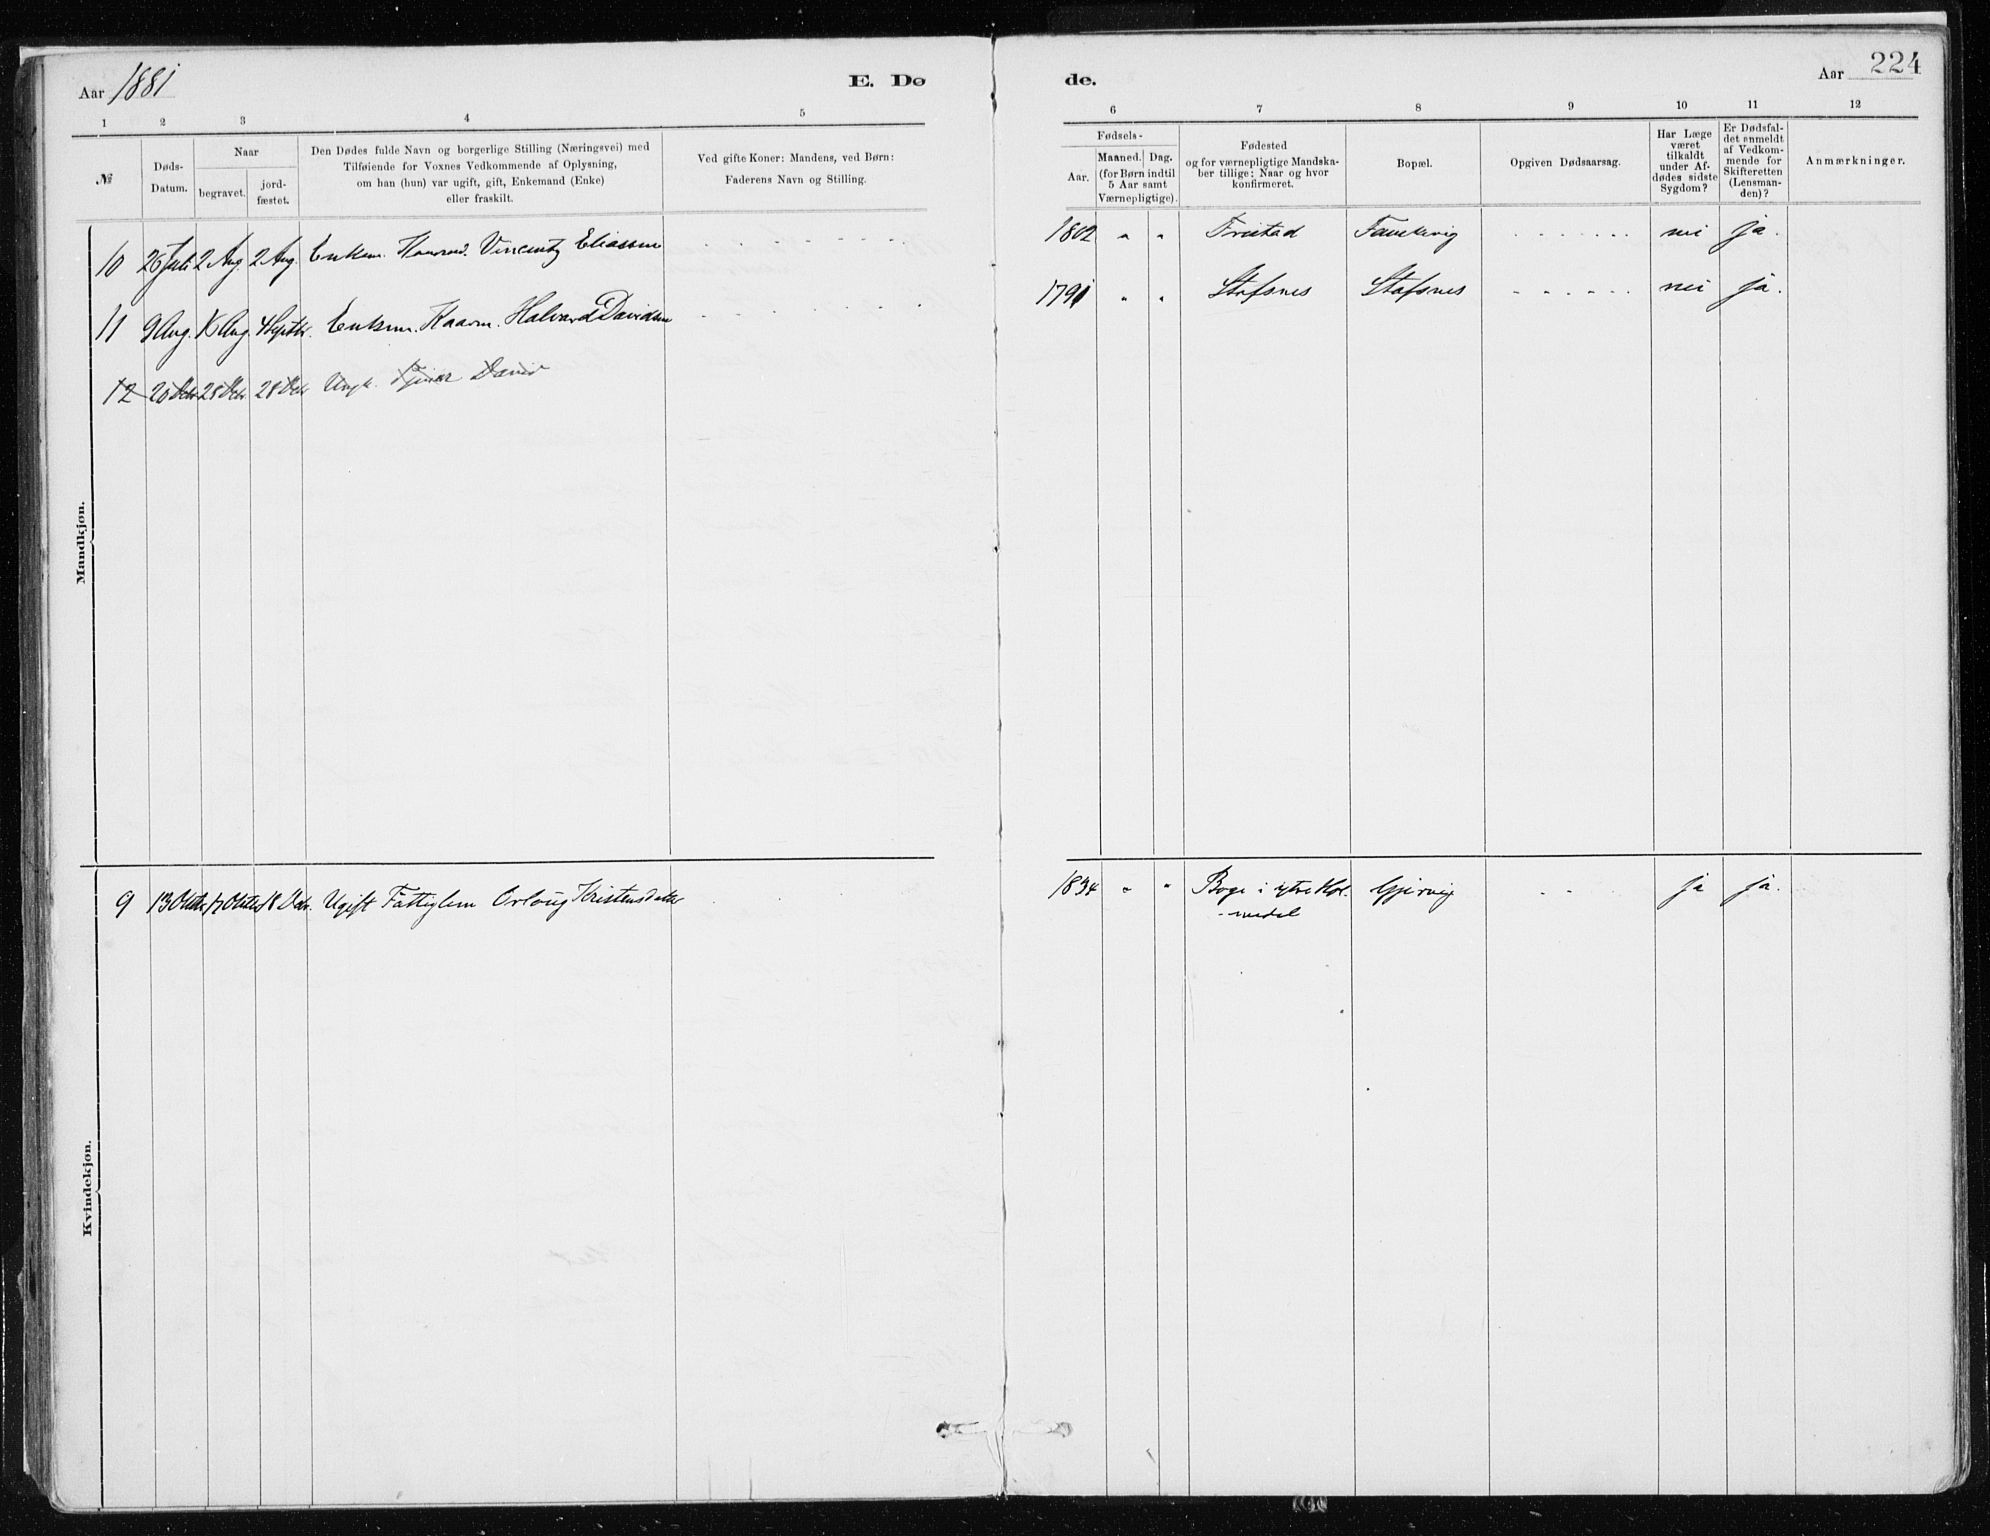 Aar 1881
E. Dø
de.
Aar 224
1 2 3 4 5 6 7 8 9 10 11 12
№
Døds-
Datum.
Naar
begravet.
jord-
fæstet.
Den Dødes fulde Navn og borgerlige Stilling (Næringsvei) med
Tilføiende for Voxnes Vedkommende af Oplysning,
om han (hun) var ugift, gift, Enkemand (Enke)
eller fraskilt.
Ved gifte Koner: Mandens, ved Børn:
Faderens Navn og Stilling.
Fødsels-
Aar.
Maaned. Dag.
(for Børn indtil
5 Aar samt
Værnepligtige).
Fødested
og for værnepligtige Mandska-
ber tillige: Naar og hvor
konfirmeret.
Bopæl.
Opgiven Dødsaarsag.
Har Læge
været
tilkaldt
under Af-
dødes sidste
Sygdom?
Er Dødsfal-
det anmeldt
af Vedkom-
mende for
Skifteretten
(Lensman-
den)?
Anmærkninger.
Mandkjøn.
10 26 Juli 2 Aug 2 Aug. Enkem. Vincentz Eliassen 1802 " " Fristad nei ja.
11 9 Aug. Aug. 4 Septbr. Enkem. Kaarm. Halvard Davidsen 1791 " " Stafsnes Stafsnes nei ja.
12 20 Dcbr 28 Dcbr 28 Dcbr Ungk. David
Kvindekjøn.
9 13 Oktbr 17 Oktbr 18 Dcbr. Ugift Fattiglem Orloug Kristensdatter 1834 " " Boge i ytre Hol- Gjervig ja ja.
-medal